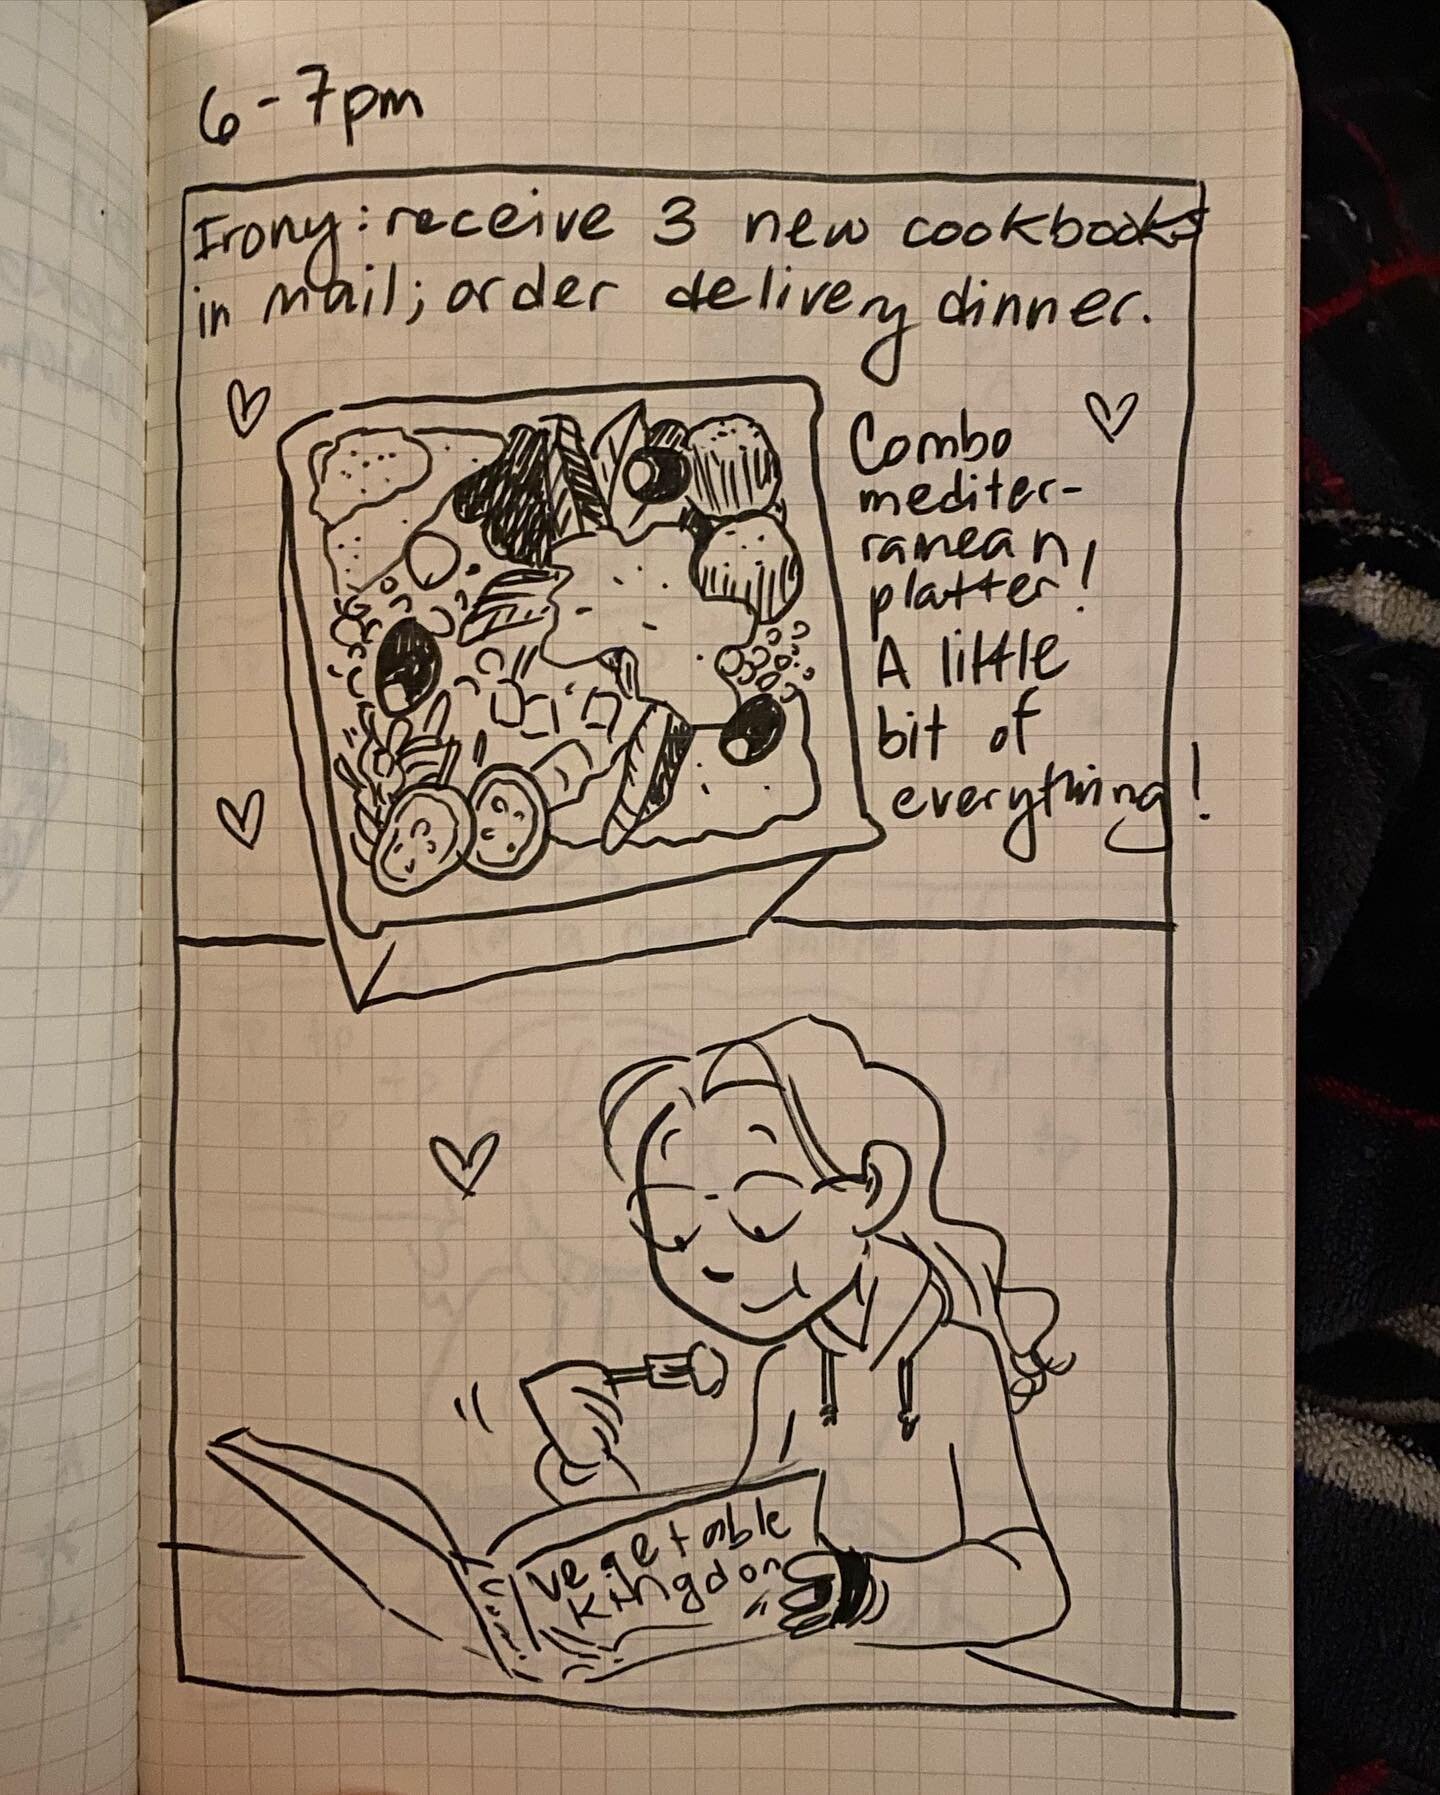 6-7pm
Irony: receive 3 new cookbooks
in mail; order delivery dinner.
Combo
mediter-
ranean
platter!
A little
bit of
everything!
Vegetable
Kingdom